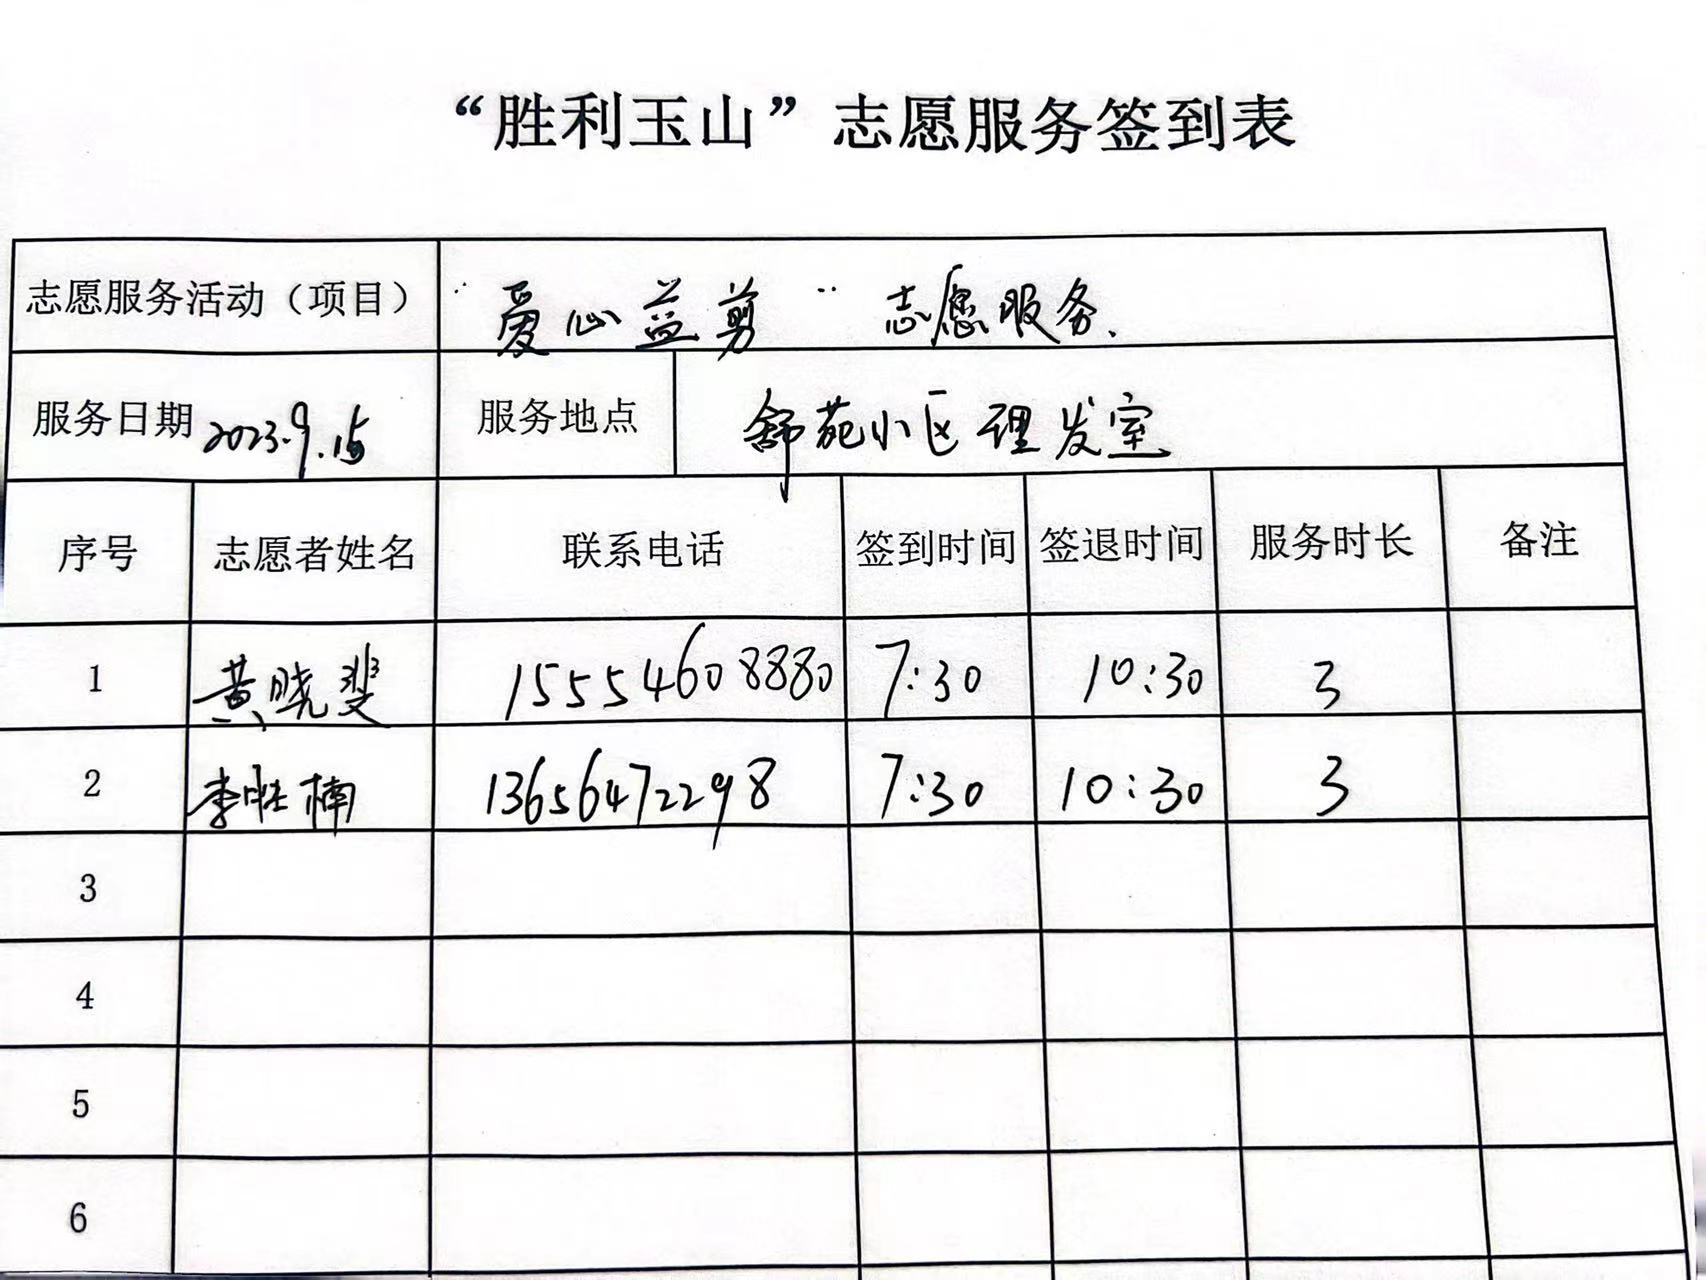 “胜利玉山”志愿服务签到表
志愿服务活动（项目） “爱心益剪”志愿服务.
服务日期 2023.9.15 服务地点 舒苑小区理发室
序号 志愿者姓名 联系电话 签到时间 签退时间 服务时长 备注
1 黄晓斐 15554608880 7:30 10:30 3
2 李胜楠 13656472298 7:30 10:30 3
3
4
5
6